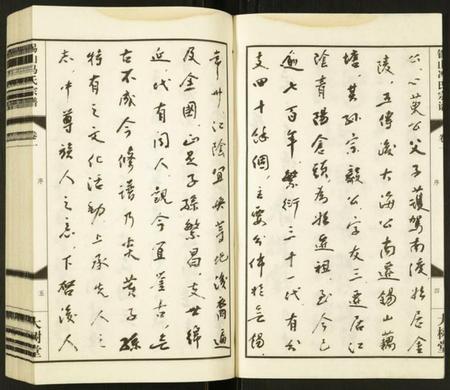 公、心莫公父子護駕南渡始居金
陵、五傳後大海公南遷錫山藕
塘、其孫宗毅公字友三遷居江
陰青陽倉頭為始遷祖、至今已
逾七百年、繁衍三十一代有分
支四十餘個、主要分佈於無錫、
四
大樹堂
錫山馮氏宗譜
卷一
序
五
大樹堂
常州江陰宜興等地後裔遍
及全國、正是子孫繁昌、支世綿
延、代有聞人、觀今宜鑒古、無
古不成今修譜乃炎黃子孫
特有之文化活動上承先人之
志、中尊族人之意、下啓後人